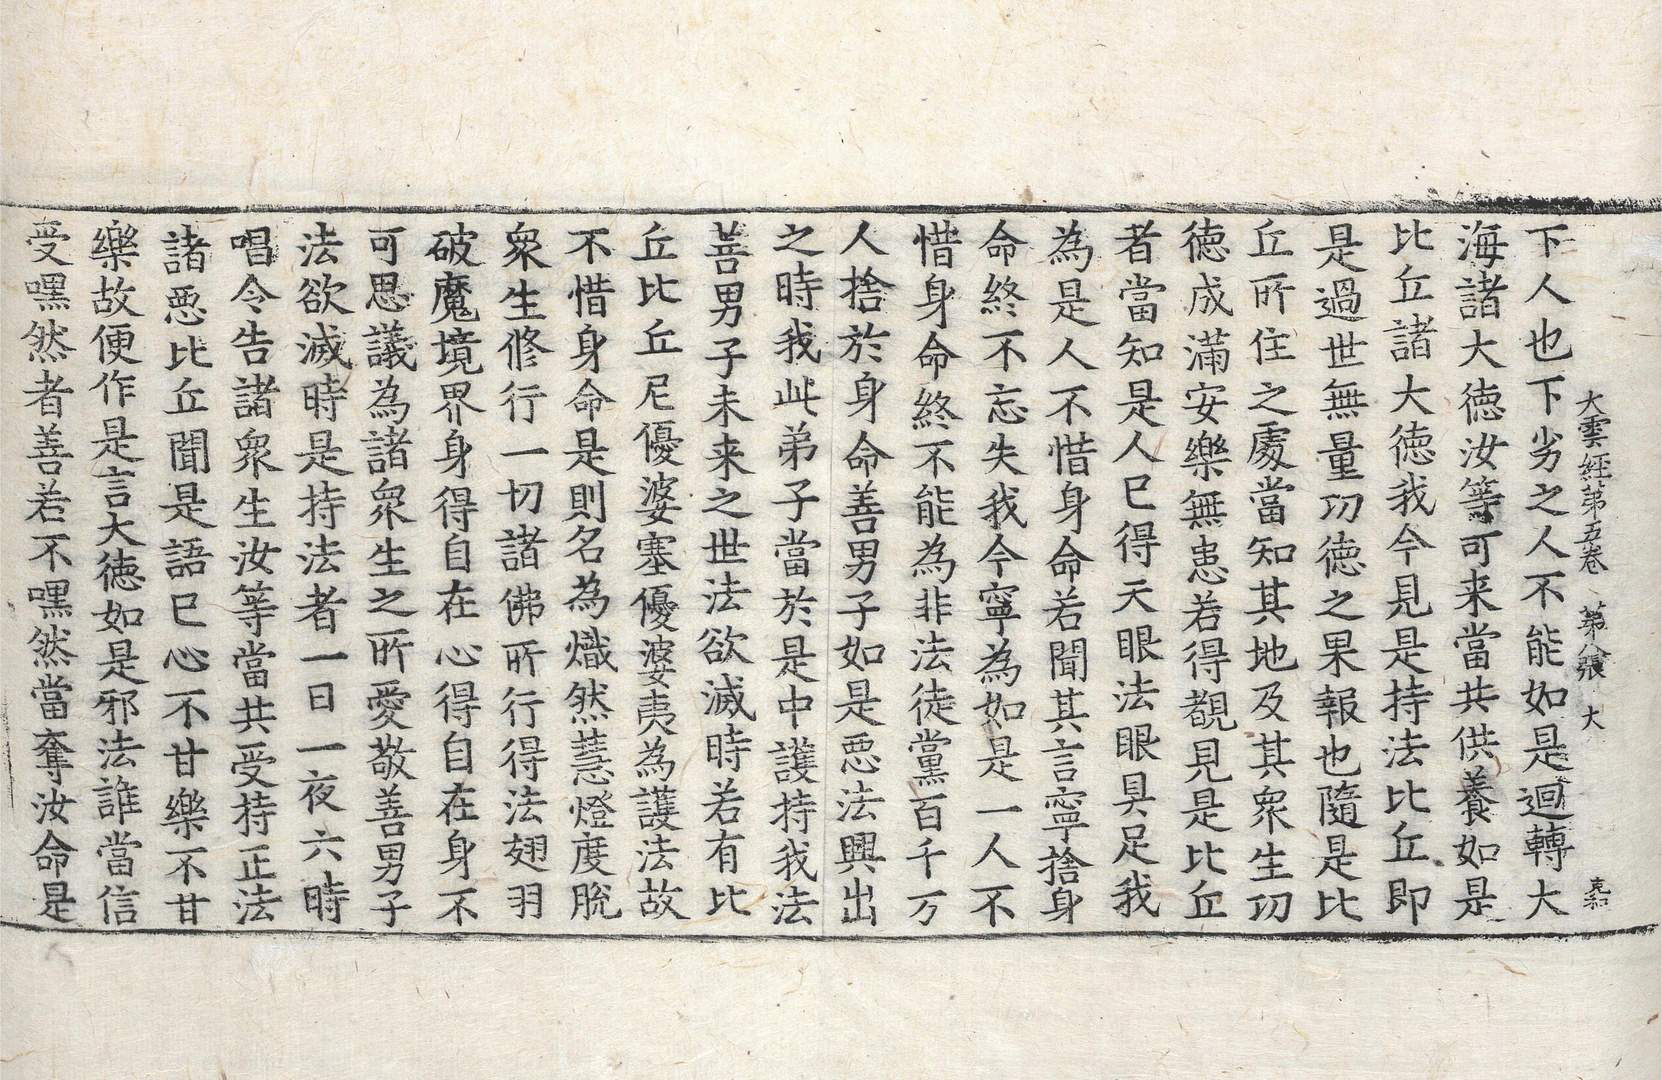 大雲経第五卷 第八張 大
下人也下劣之人不能如是迴轉大
海諸大徳汝等可来當共供養如是
比丘諸大徳我今見是持法比丘即
是過世無量功徳之果報也隨是比
丘所住之處當知其地及其衆生功
徳成滿安樂無患若得覩見是比丘
者當知是人已得天眼法眼具足我
為是人不惜身命若聞其言寧捨身
命終不忘失我今寧為如是一人不
惜身命終不能為非法徒黨百千万
人捨於身命善男子如是惡法興出
之時我此弟子當於是中護持我法
善男子未来之世法欲滅時若有比
丘比丘尼優婆塞優婆夷為護法故
不惜身命是則名為熾然慧燈度脫
衆生修行一切諸佛所行得法翅羽
破魔境界身得自在心得自在身不
可思議為諸衆生之所愛敬善男子
法欲滅時是持法者一日一夜六時
唱令告諸衆生汝等當共受持正法
諸惡比丘聞是語已心不甘樂不甘
樂故便作是言大徳如是邪法誰當信
受嘿然者善若不嘿然當奪汝命是